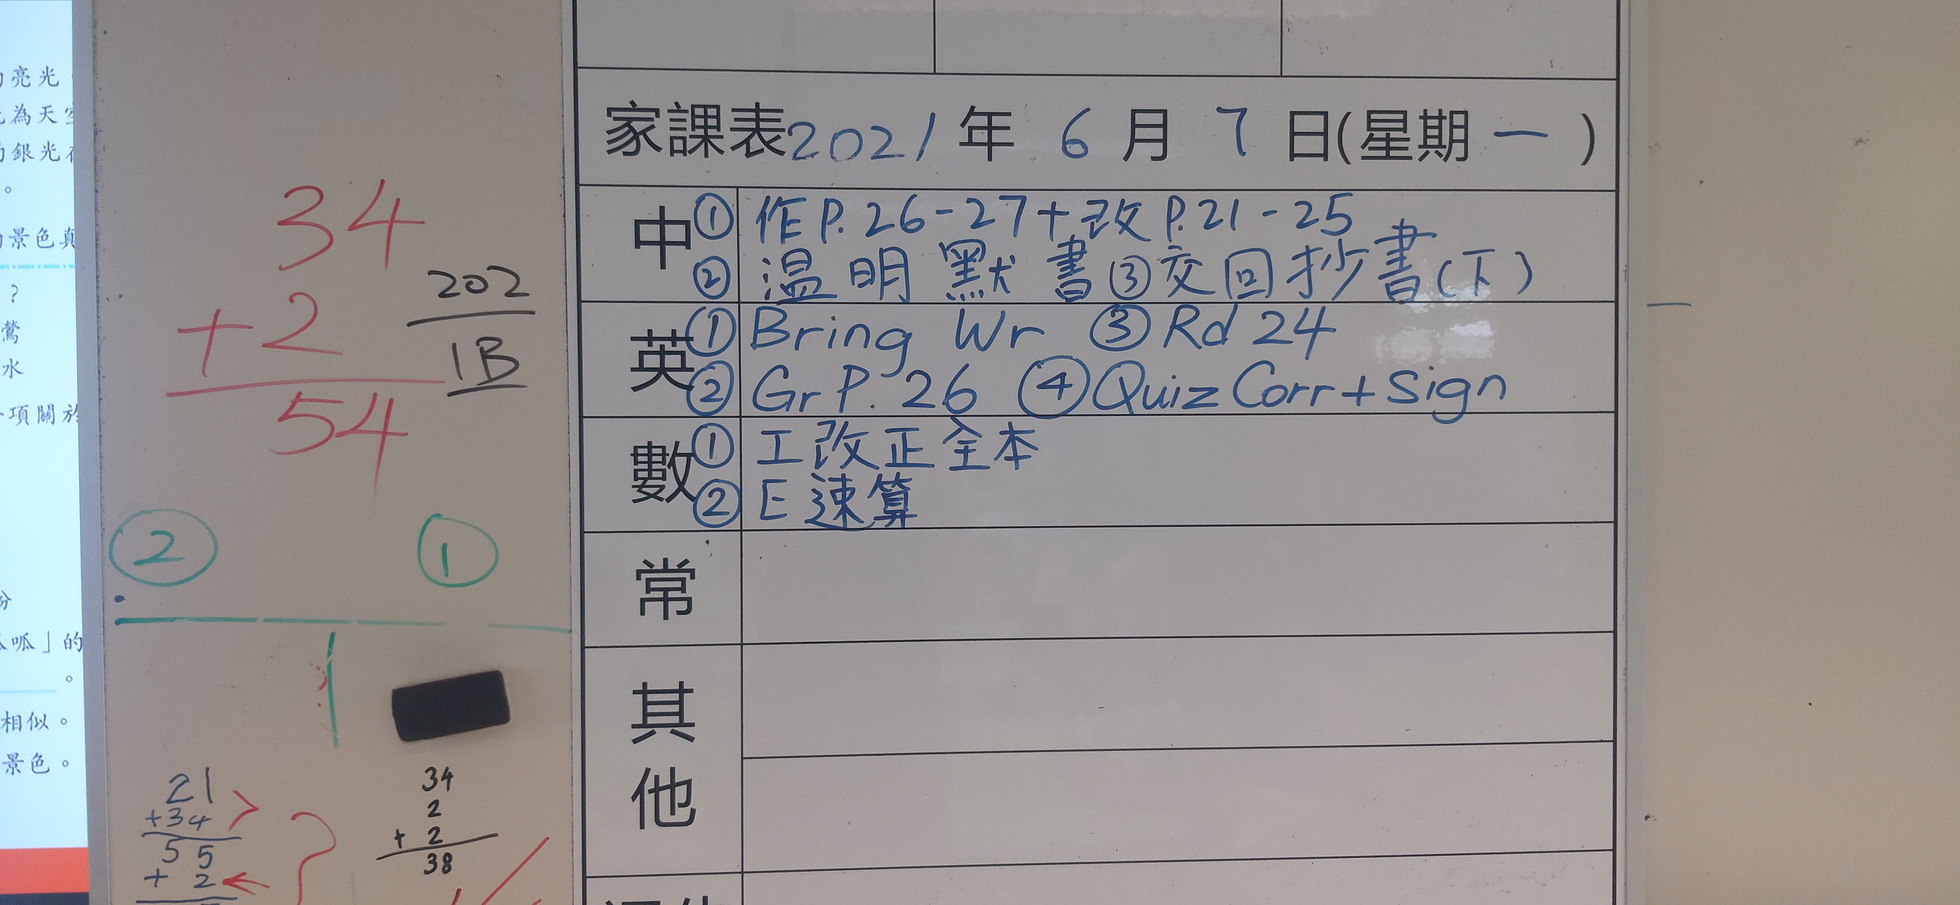 的亮光
為天空
的銀光在
。
的景色真
？
鶯
水
一項關於
份
呱呱」的
。
相似。
景色。
34
+2
54
202
1B
② ①
21
+34
55
+ 2
34
2
+ 2
38
家課表2021年 6 月 7 日(星期一)
中 ① 作P.26-27+改P.21-25
② 温明默書③交回抄書(下)
英 ① Bring Wr ③ Rd 24
② Gr P. 26 ④ Quiz Corr + Sign
數 ① 工改正全本
② E速算
常
其
他